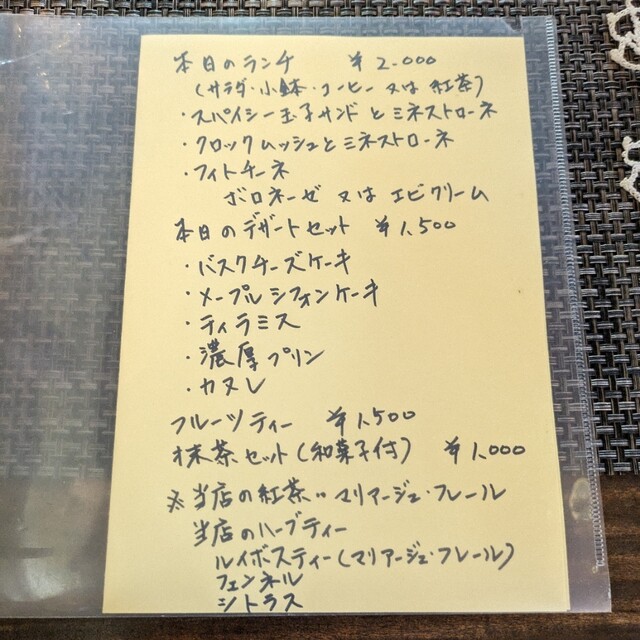 本日のランチ ¥2.000
(サラダ・小鉢・コーヒー又は紅茶)
・スパイシー玉子サンドとミネストローネ
・クロックムッシュとミネストローネ
・フィトチーネ
ボロネーゼ 又は エビクリーム
本日のデザートセット ¥1,500
・バスクチーズケーキ
・メープルシフォンケーキ
・ティラミス
・濃厚プリン
・カヌレ
フルーツティー ¥1,500
抹茶セット(和菓子付) ¥1,000
※当店の紅茶‥マリアージュ・フレール
当店のハーブティー
ルイボスティー(マリアージュ・フレール)
フェンネル
シトラス